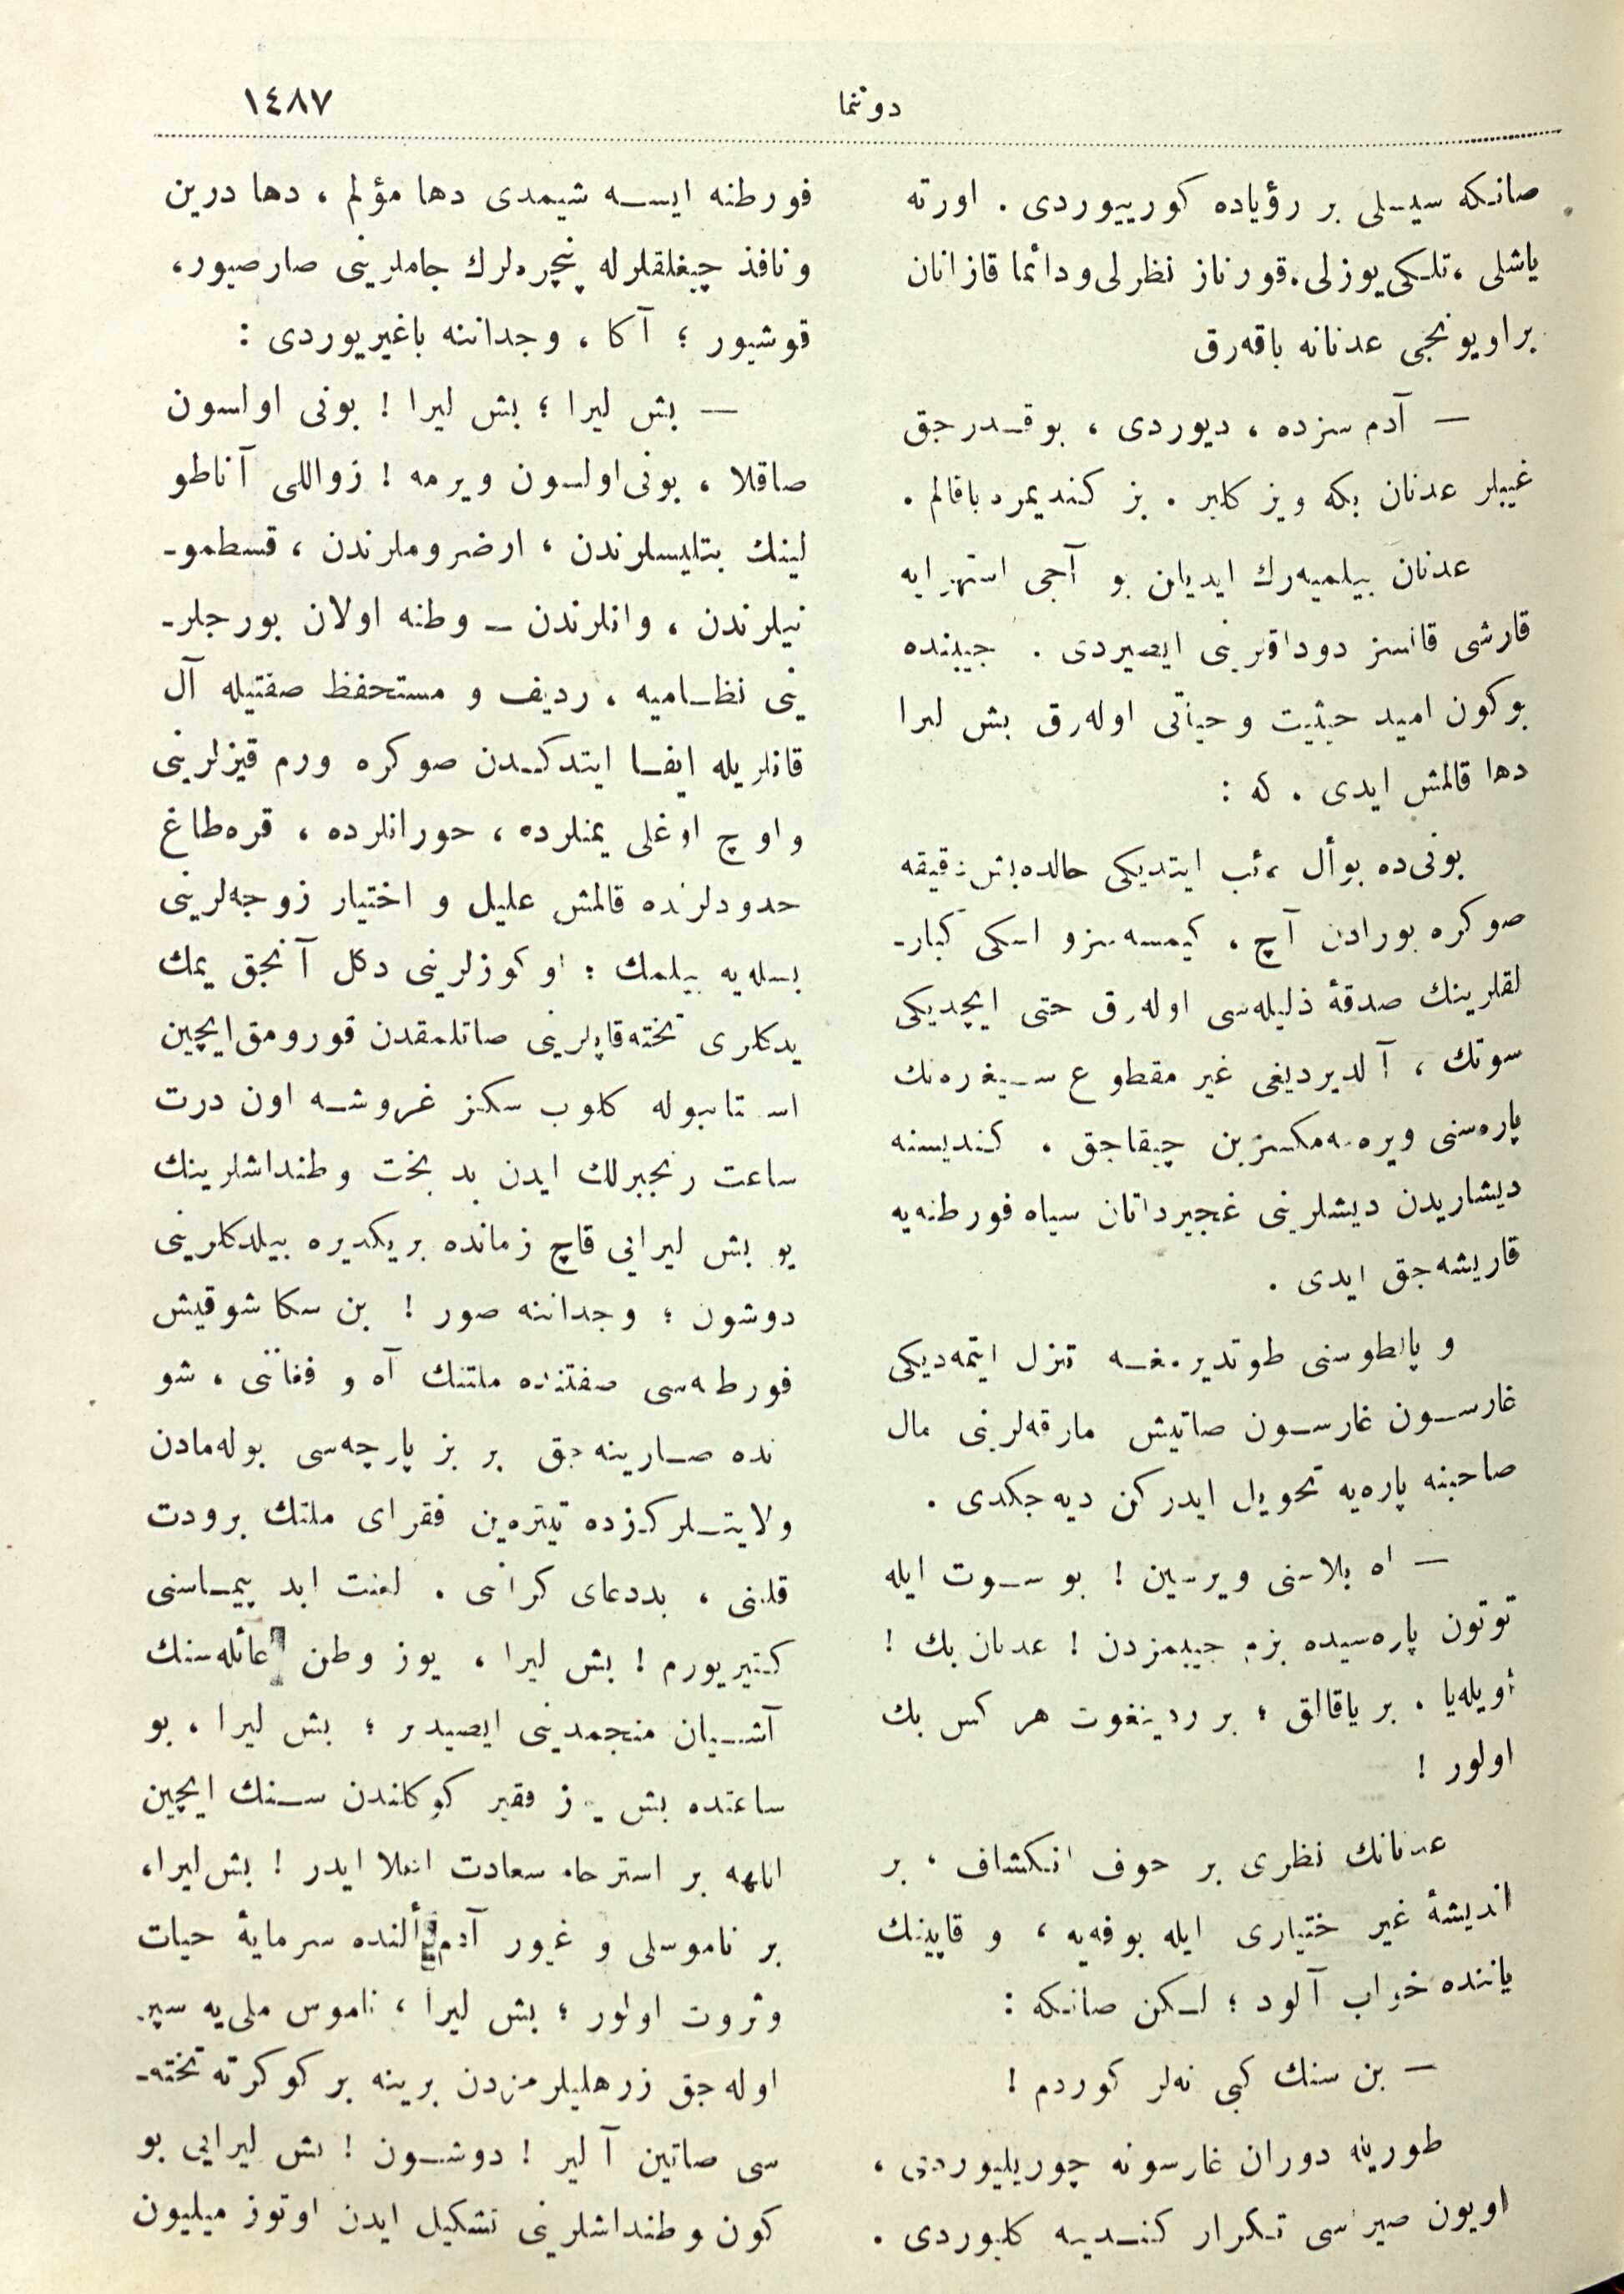 دوننما
١٤٨٧
صانكه سيسلی بر رؤیاده كورییوردی . اورته
یاشلی ، تلكی یوزلی، قورناز نظرلی و دائما قازانان
بر اویونجی عدنانه باقەرق
— آدم سزده ، دیوردی ، بو قدرجق
غیبلر عدنان بكه ویز كلیر . بز كندیمزه باقالم .
عدنان بیلمیەرك ایدیلن بو آجی استهزایه
قارشی قانسز دوداقلرینی ایصیردی . جیبنده
بوكون امید حیثیت و حیاتی اولەرق بش لیرا
دها قالمش ایدی . كه :
بونی‌ده بو أل غائب ایتدیكی حالده بش دقیقه
صوكره بورادن آچ ، كیمسەسز و اسكی كبار-
لقلرینك صدقۀ ذلیلەسی اولەرق حتی ایچدیكی
سوتك ، آلدیردیغی غیر مقطوع سیغرەنك
پارەسنی ویرەمەكسزین چیقاجق . كندیسنه
دیشاریدن دیشلرینی غجیرداتان سیاه فورطنەیه
قاریشەجق ایدی .
و پالطوسنی طوتدیرمغه تنزل ایتمەدیكی
غارسون غارسون صاتیش مارقەلرینی مال
صاحبنه پارەیه تحویل ایدركن دیەجكدی .
— اه بلاسنی ویرسین ! بو سوت ایله
توتون پارەسیده بزم جیبمزدن ! عدنان بك !
أویلەیا . بر یاقالق ؛ بر ردینغوت هر كس بك
اولور !
عدنانك نظری بر خوف انكشاف ، بر
اندیشۀ غیر ختیاری ایله بوفەیه ، و قاپینك
یاننده خراب آلود ؛ لكن صانكه :
— بن سنك كبی نەلر كوردم !
طورینه دوران غارسونه چوریلیوردی ،
اویون صیراسی تكرار كندیه كلیوردی .
فورطنه ایسه شیمدی دها مؤلم ، دها درین
و نافذ چیغلقلرله پنچرەلرك جاملرینی صارصیور،
قوشیور ؛ آكا ، وجداننه باغیریوردی :
— بش لیرا ؛ بش لیرا ! بونی اولسون
صاقلا ، بونی اولسون ویرمه ! زواللی آناطو
لینك بتلیسلرندن ، ارضروملرندن ، قسطمو-
نیلرندن ، وانلرندن — وطنه اولان بورجلر-
ینی نظامیه ، ردیف و مستحفظ صفتیله آل
قانلریله ایفا ایتدكدن صوكره ورم قیزلرینی
و اوچ اوغلی یمنلرده ، حورانلرده ، قرەطاغ
حدودلرنده قالمش علیل و اختیار زوجەلرینی
بسلەیه بیلمك ؛ اوكوزلرینی دكل آنجق یمك
یدكلری تخته قاپلرینی صاتلمقدن قورومق ایچین
استانبوله كلوب سكز غروشه اون درت
ساعت رنجبرلك ایدن بدبخت وطنداشلرینك
بو بش لیرایی قاچ زمانده بریكدیره بیلدكلرینی
دوشون ؛ وجداننه صور ! بن سكا شو قیش
فورطنەسی صفتنده ملتنك آه و فغاننی ، شو
نده صارینەجق بر بز پارچەسی بولەمادن
ولایتلركزده تیترەین فقرای ملتك برودت
قلبنی ، بددعای كرانی . لعنت ابد پیماسنی
كتیریورم ! بش لیرا ، یوز وطن عائلەسنك
آشیان منجمدینی ایصیدر ؛ بش لیرا ، بو
ساعتده بش یوز فقیر كوكلندن سنك ایچین
اللهه بر استرحام سعادت اعلا ایدر ! بش لیرا،
بر ناموسلی و غیور آدم ألنده سرمایۀ حیات
و ثروت اولور ؛ بش لیرا ، ناموس ملی‌یه سپر
اولەجق زرهلیلرمزدن برینه بر كوكرته تخته-
سی صاتین آلیر ! دوشون ! بش لیرایی بو
كون وطنداشلرینی تشكیل ایدن اوتوز میلیون